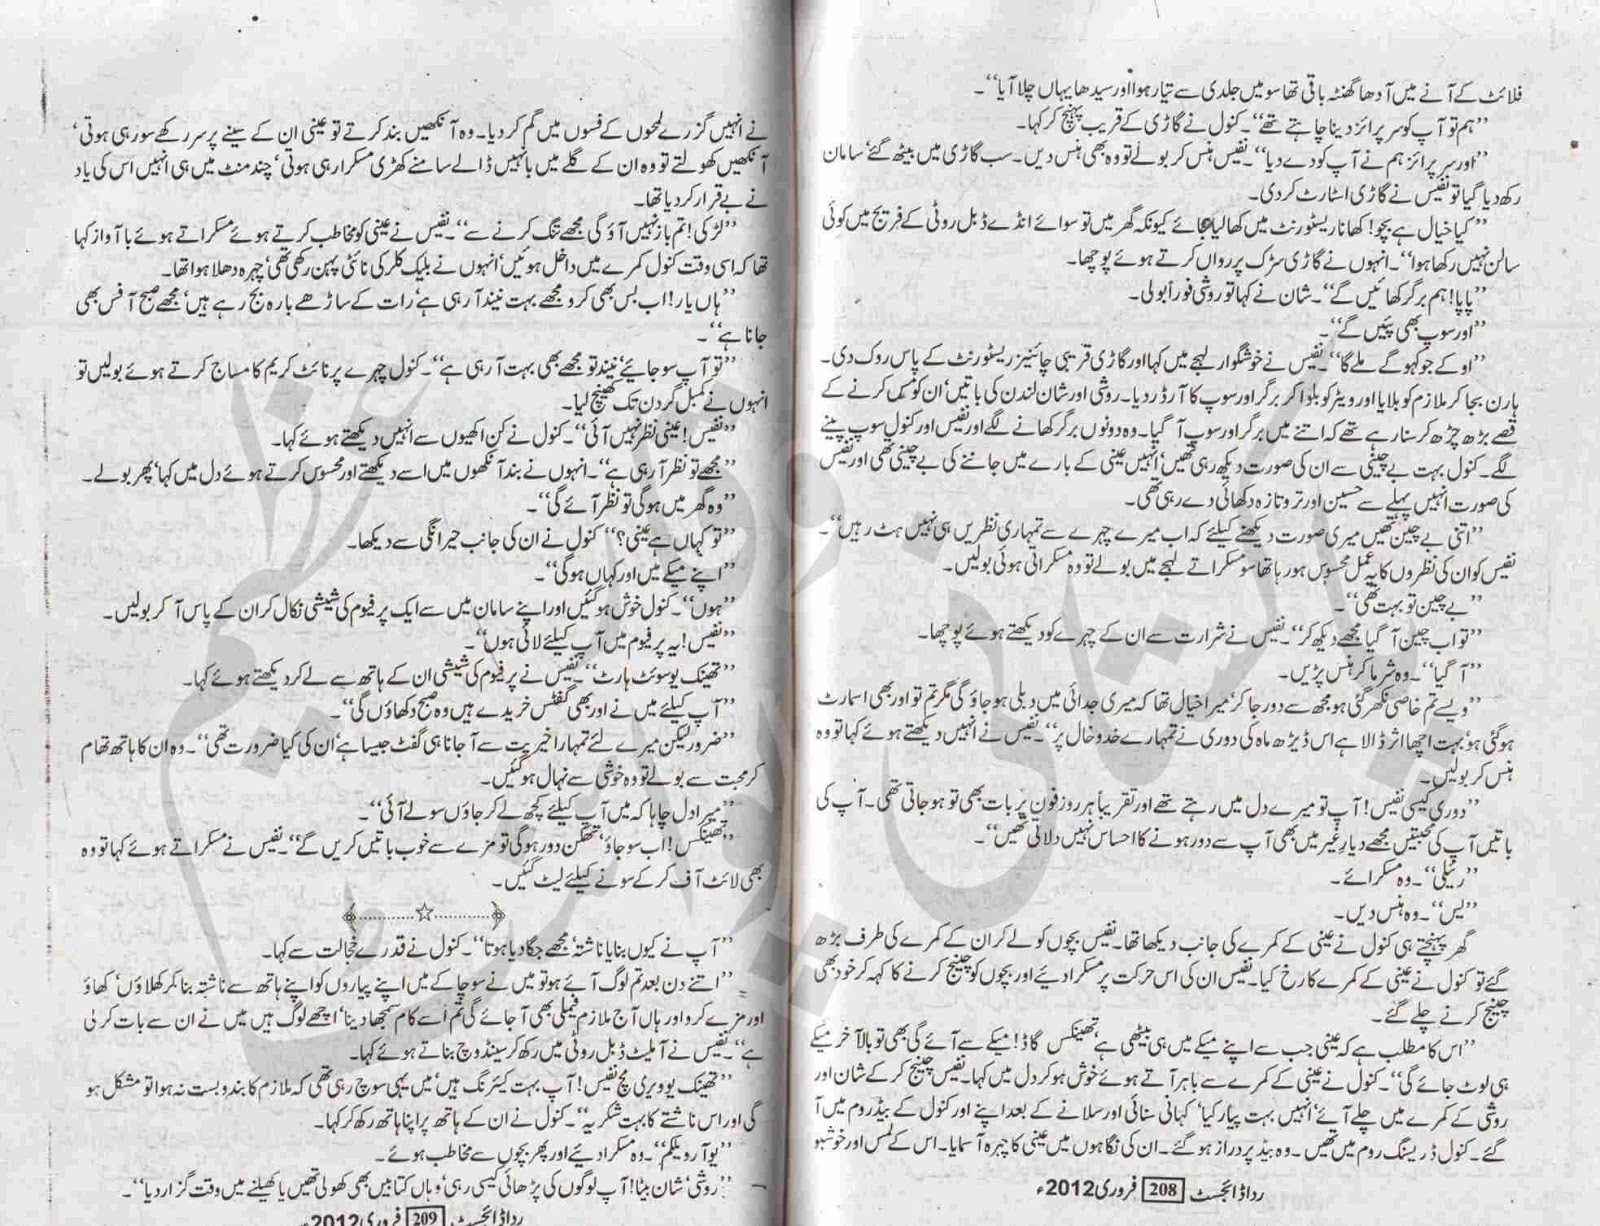 فلائٹ کے آنے میں آدھا گھنٹہ باقی تھا سو میں جلدی سے تیار ہوا اور سیدھا یہاں چلا آیا‘‘۔
’’ہم تو آپ کو سرپرائز دینا چاہتے تھے‘‘۔ کنول نے گاڑی کے قریب پہنچ کر کہا۔
’’اور سرپرائز ہم نے آپ کو دے دیا‘‘۔ نفیس ہنس کر بولے تو وہ بھی ہنس دیں۔ سب گاڑی میں بیٹھ گئے‘ سامان
رکھ دیا گیا تو نفیس نے گاڑی اسٹارٹ کر دی۔
’’کیا خیال ہے بچو! کھانا ریسٹورنٹ میں کھا لیا جائے کیونکہ گھر میں تو سوائے انڈے ڈبل روٹی کے فریج میں کوئی
سالن نہیں رکھا ہوا‘‘۔ انہوں نے گاڑی سڑک پر رواں کرتے ہوئے پوچھا۔
’’پاپا! ہم برگر کھائیں گے‘‘۔ شان نے کہا تو روشی فوراً بولی۔
’’اور سوپ بھی پئیں گے‘‘۔
’’اوکے جو کہو گے ملے گا‘‘۔ نفیس نے خوشگوار لہجے میں کہا اور گاڑی قریبی چائنیز ریسٹورنٹ کے پاس روک دی۔
ہارن بجا کر ملازم کو بلایا اور ویٹر کو بلوا کر برگر اور سوپ کا آرڈر دیا۔ روشی اور شان لندن کی باتیں‘ ان کو مک کرنے کے
قصے بڑھ چڑھ کر سنا رہے تھے کہ اتنے میں برگر اور سوپ آ گیا۔ وہ دونوں برگر کھانے لگے اور نفیس اور کنول سوپ پینے
لگے۔ کنول بہت بے چینی سے ان کی صورت دیکھ رہی تھیں‘ انہیں عینی کے بارے میں جاننے کی بے چینی تھی اور نفیس
کی صورت انہیں پہلے سے حسین اور تر و تازہ دکھائی دے رہی تھی۔
’’اتنی بے چین تھیں میری صورت دیکھنے کیلئے کہ اب میرے چہرے سے تمہاری نظریں ہی نہیں ہٹ رہیں‘‘۔
نفیس کو ان کی نظروں کا یہ عمل محسوس ہو رہا تھا سو مسکراتے لہجے میں بولے تو وہ مسکراتی ہوئی بولیں۔
’’بے چین تو بہت تھی‘‘۔
’’تو اب چین آ گیا مجھے دیکھ کر‘‘۔ نفیس نے شرارت سے ان کے چہرے کو دیکھتے ہوئے پوچھا۔
’’آ گیا‘‘۔ وہ شرما کر ہنس پڑیں۔
’’ویسے تم خاصی نکھر گئی ہو مجھ سے دور جا کر‘ میرا خیال تھا کہ میری جدائی میں دبلی ہو جاؤ گی مگر تم تو اور بھی اسمارٹ
ہو گئی ہو‘ بہت اچھا اثر ڈالا ہے اس ڈیڑھ ماہ کی دوری نے تمہارے خدوخال پر‘‘۔ نفیس نے انہیں دیکھتے ہوئے کہا تو وہ
ہنس کر بولیں۔
’’دوری کیسی نفیس! آپ تو میرے دل میں رہتے تھے اور تقریباً ہر روز فون پر بات بھی تو ہو جاتی تھی۔ آپ کی
باتیں آپ کی محبتیں مجھے دیارِ غیر میں بھی آپ سے دور ہونے کا احساس نہیں دلاتی تھیں‘‘۔
’’رئیلی‘‘۔ وہ مسکرائے۔
’’یس‘‘۔ وہ ہنس دیں۔
گھر پہنچتے ہی کنول نے عینی کے کمرے کی جانب دیکھا تھا۔ نفیس بچوں کو لے کر ان کے کمرے کی طرف بڑھ
گئے تو کنول نے عینی کے کمرے کا رخ کیا۔ نفیس ان کی اس حرکت پر مسکرا دیئے اور بچوں کو چینج کرنے کا کہہ کر خود بھی
چینج کرنے چلے گئے۔
’’اس کا مطلب ہے کہ عینی جب سے اپنے میکے میں ہی بیٹھی ہے‘ تھینکس گاڈ! میکے سے آئے گی بھی تو بالآخر میکے
ہی لوٹ جائے گی‘‘۔ کنول نے عینی کے کمرے سے باہر آتے ہوئے خوش ہو کر دل میں کہا۔ نفیس چینج کر کے شان اور
روشی کے کمرے میں چلے آئے‘ انہیں بہت پیار کیا‘ کہانی سنائی اور سلانے کے بعد اپنے اور کنول کے بیڈ روم میں آ
گئے۔ کنول ڈریسنگ روم میں تھیں۔ وہ بیڈ پر دراز ہو گئے۔ ان کی نگاہوں میں عینی کا چہرہ آ سمایا۔ اس کے لمس اور خوشبو
رداڈائجسٹ 208 فروری 2012ء
نے انہیں گزرے لمحوں کے فسوں میں گم کر دیا۔ وہ آنکھیں بند کرتے تو عینی ان کے سینے پر سر رکھے سو رہی ہوتی‘
آنکھیں کھولتے تو وہ ان کے گلے میں بانہیں ڈالے سامنے کھڑی مسکرا رہی ہوتی‘ چند منٹ میں ہی انہیں اس کی یاد
نے بے قرار کر دیا تھا۔
’’لڑکی! تم باز نہیں آؤ گی مجھے تنگ کرنے سے‘‘۔ نفیس نے عینی کو مخاطب کرتے ہوئے مسکراتے ہوئے با آواز کہا
تھا کہ اسی وقت کنول کمرے میں داخل ہوئیں‘ انہوں نے بلیک کلر کی نائٹی پہن رکھی تھی‘ چہرہ دھلا ہوا تھا۔
’’ہاں یار! اب بس بھی کرو مجھے بہت نیند آ رہی ہے‘ رات کے ساڑھے بارہ بج رہے ہیں‘ مجھے صبح آفس بھی
جانا ہے‘‘۔
’’تو آپ سو جائیے‘ نیند تو مجھے بھی بہت آ رہی ہے‘‘۔ کنول چہرے پر نائٹ کریم کا مساج کرتے ہوئے بولیں تو
انہوں نے کمبل گردن تک کھینچ لیا۔
’’نفیس! عینی نظر نہیں آئی‘‘۔ کنول نے کن اکھیوں سے انہیں دیکھتے ہوئے کہا۔
’’مجھے تو نظر آ رہی ہے‘‘۔ انہوں نے بند آنکھوں میں اسے دیکھتے اور محسوس کرتے ہوئے دل میں کہا‘ پھر بولے۔
’’وہ گھر میں ہو گی تو نظر آئے گی‘‘۔
’’تو کہاں ہے عینی؟‘‘ کنول نے ان کی جانب حیرانگی سے دیکھا۔
’’اپنے میکے میں اور کہاں ہو گی‘‘۔
’’ہوں‘‘۔ کنول خوش ہو گئیں اور اپنے سامان میں سے ایک پرفیوم کی شیشی نکال کر ان کے پاس آ کر بولیں۔
’’نفیس! یہ پرفیوم میں آپ کیلئے لائی ہوں‘‘۔
’’تھینک یو سوئٹ ہارٹ‘‘۔ نفیس نے پرفیوم کی شیشی ان کے ہاتھ سے لے کر دیکھتے ہوئے کہا۔
’’آپ کیلئے میں نے اور بھی گفٹس خریدے ہیں وہ صبح دکھاؤں گی‘‘۔
’’ضرور لیکن میرے لئے تمہارا خیریت سے آ جانا ہی گفٹ جیسا ہے‘ ان کی کیا ضرورت تھی‘‘۔ وہ ان کا ہاتھ تھام
کر محبت سے بولے تو وہ خوشی سے نہال ہو گئیں۔
’’میرا دل چاہا کہ میں آپ کیلئے کچھ لے کر جاؤں سو لے آئی‘‘۔
’’تھینکس! اب سو جاؤ‘ تھکن دور ہو گی تو مزے سے خوب باتیں کریں گے‘‘۔ نفیس نے مسکراتے ہوئے کہا تو وہ
بھی لائٹ آف کر کے سونے کیلئے لیٹ گئیں۔
’’آپ نے کیوں بنایا ناشتہ‘ مجھے جگا دیا ہوتا‘‘۔ کنول نے قدرے خجالت سے کہا۔
’’اتنے دن بعد تم لوگ آئے ہو تو میں نے سوچا کے میں اپنے پیاروں کو اپنے ہاتھ سے ناشتہ بنا کر کھلاؤں‘ کھاؤ
اور مزے کرو اور ہاں آج ملازم فیملی بھی آ جائے گی تم اُسے کام سمجھا دینا‘ اچھے لوگ ہیں میں نے ان سے بات کر لی
ہے‘‘۔ نفیس نے آملیٹ ڈبل روٹی میں رکھ کر سینڈوچ بناتے ہوئے کہا۔
’’تھینک یو ویری مچ نفیس! آپ بہت کیئرنگ ہیں‘ میں یہی سوچ رہی تھی کہ ملازم کا بندوبست نہ ہوا تو مشکل ہو
گی اور اس ناشتے کا بہت شکریہ‘‘۔ کنول نے ان کے ہاتھ پر اپنا ہاتھ رکھ کر کہا۔
’’یو آر ویلکم‘‘۔ وہ مسکرا دیئے اور پھر بچوں سے مخاطب ہوئے۔
’’روشی‘ شان بیٹا! آپ لوگوں کی پڑھائی کیسی رہی‘ وہاں کتابیں بھی کھولی تھیں یا کھیلنے میں وقت گزار دیا‘‘۔
رداڈائجسٹ 209 فروری 2012ء